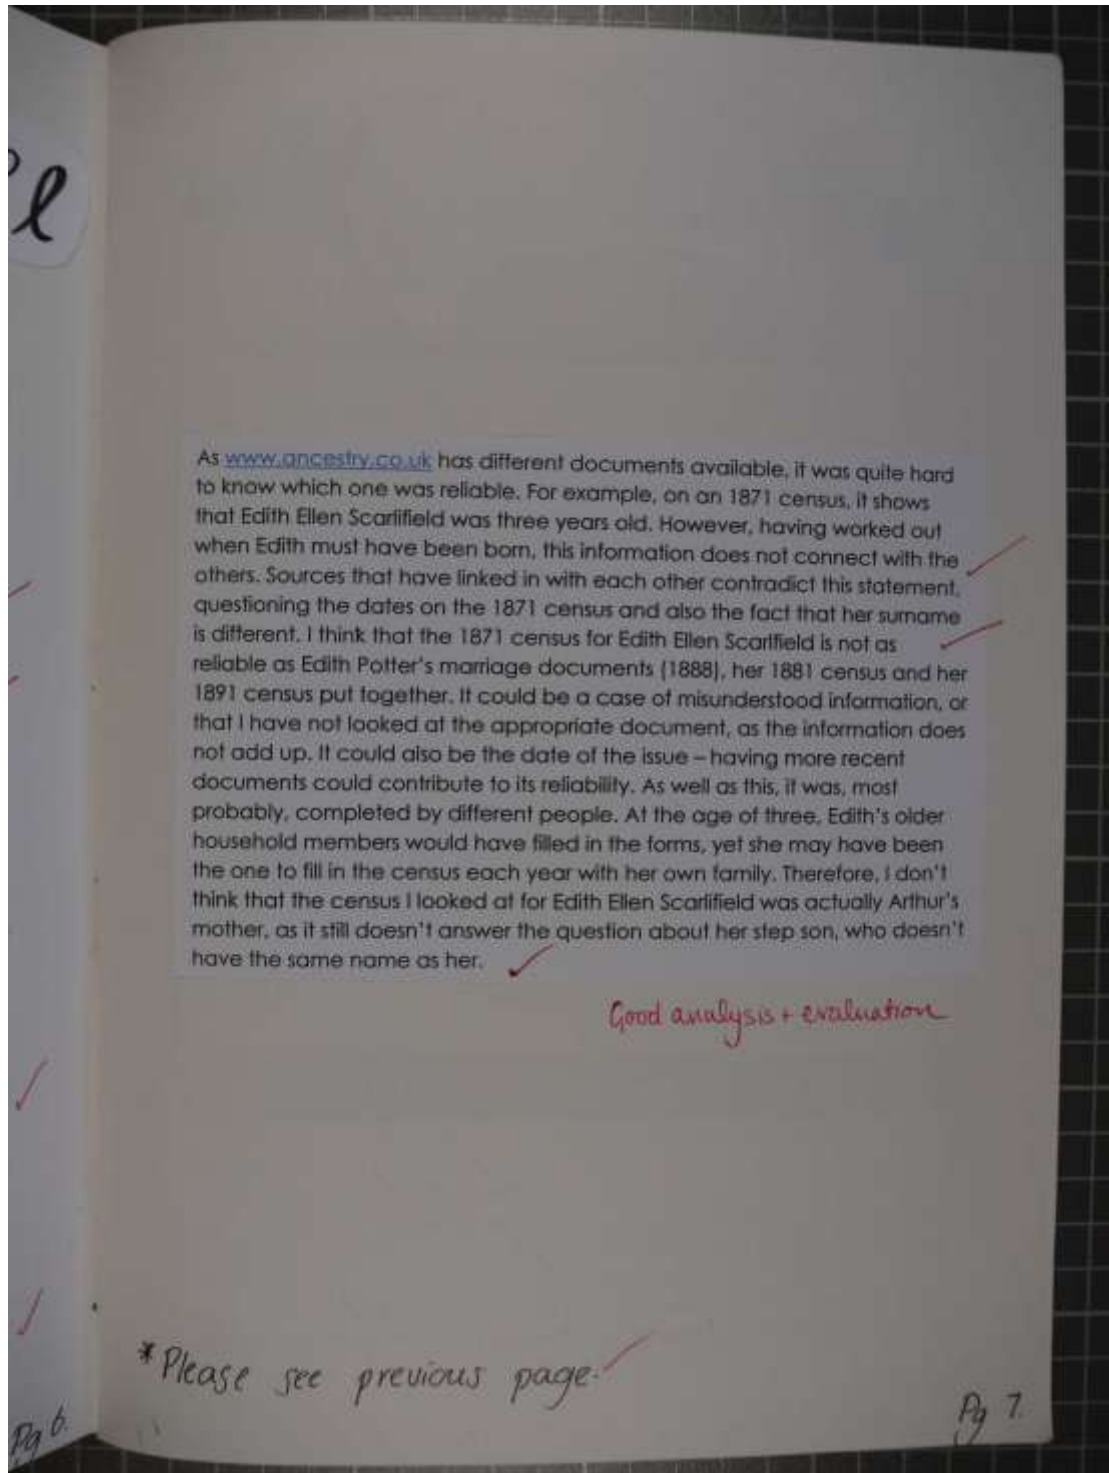 l
As www.ancestry.co.uk has different documents available, it was quite hard
to know which one was reliable. For example, on an 1871 census, it shows
that Edith Ellen Scarlifield was three years old. However, having worked out
when Edith must have been born, this information does not connect with the
others. Sources that have linked in with each other contradict this statement,
questioning the dates on the 1871 census and also the fact that her surname
is different. I think that the 1871 census for Edith Ellen Scarlfield is not as
reliable as Edith Potter's marriage documents (1888), her 1881 census and her
1891 census put together. It could be a case of misunderstood information, or
that I have not looked at the appropriate document, as the information does
not add up. It could also be the date of the issue – having more recent
documents could contribute to its reliability. As well as this, it was, most
probably, completed by different people. At the age of three, Edith's older
household members would have filled in the forms, yet she may have been
the one to fill in the census each year with her own family. Therefore, I don't
think that the census I looked at for Edith Ellen Scarlifield was actually Arthur's
mother, as it still doesn't answer the question about her step son, who doesn't
have the same name as her.
Good analysis + evaluation
*Please see previous page.
Pg 6.
Pg 7.